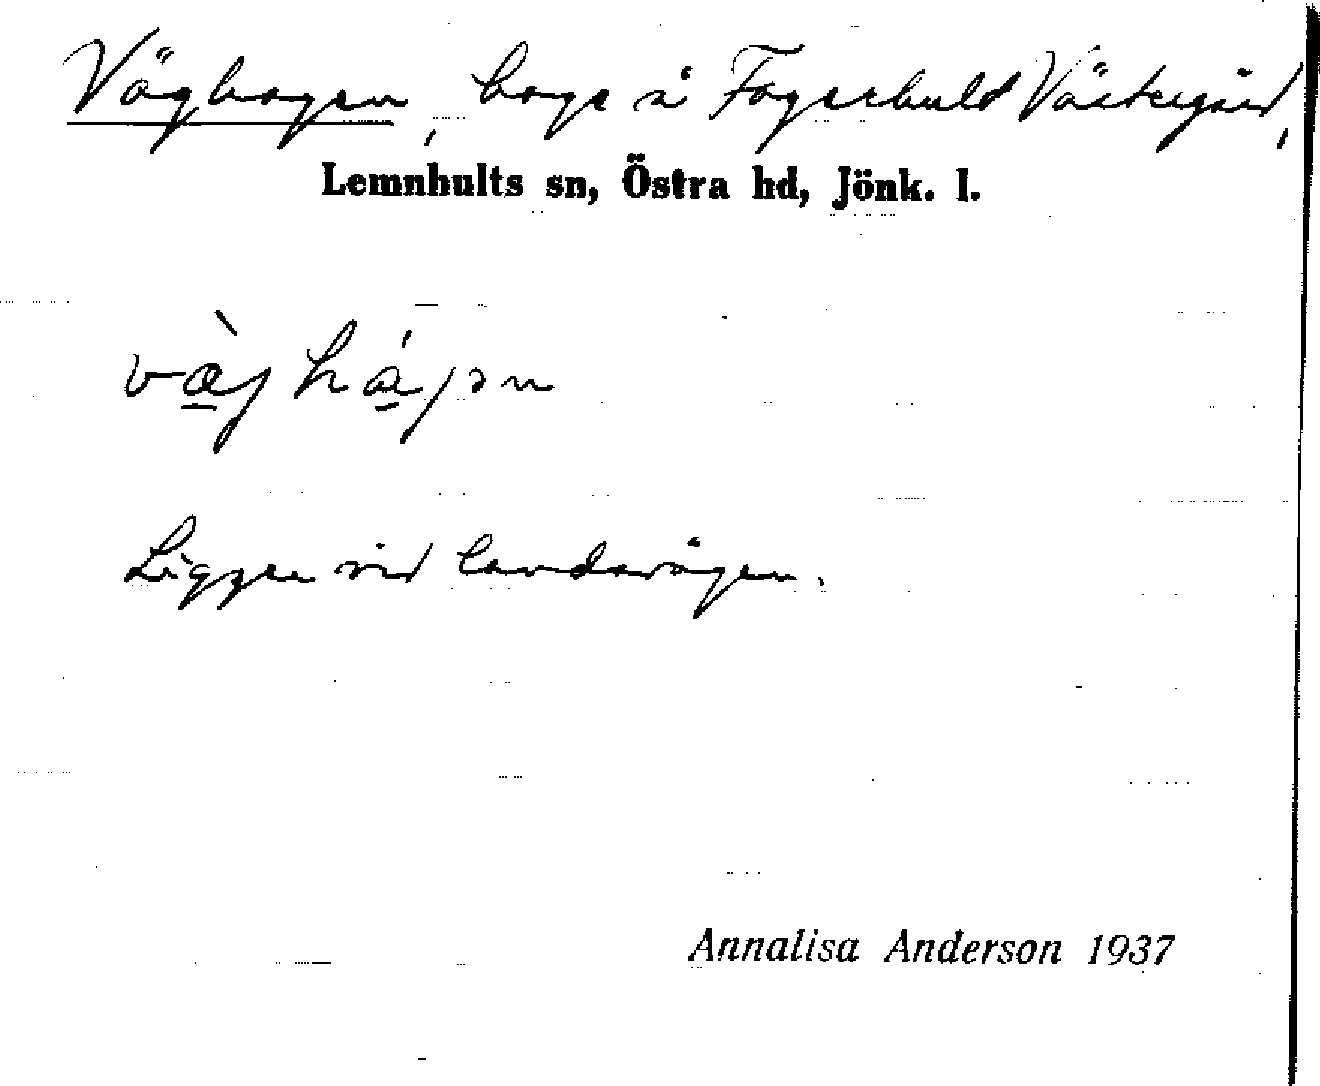 Väghagen, hage å Fagerhult Västergård,
Lemnhults sn, Östra hd, Jönk. l.
Ligger vid landsvägen.
Annalisa Anderson 1937